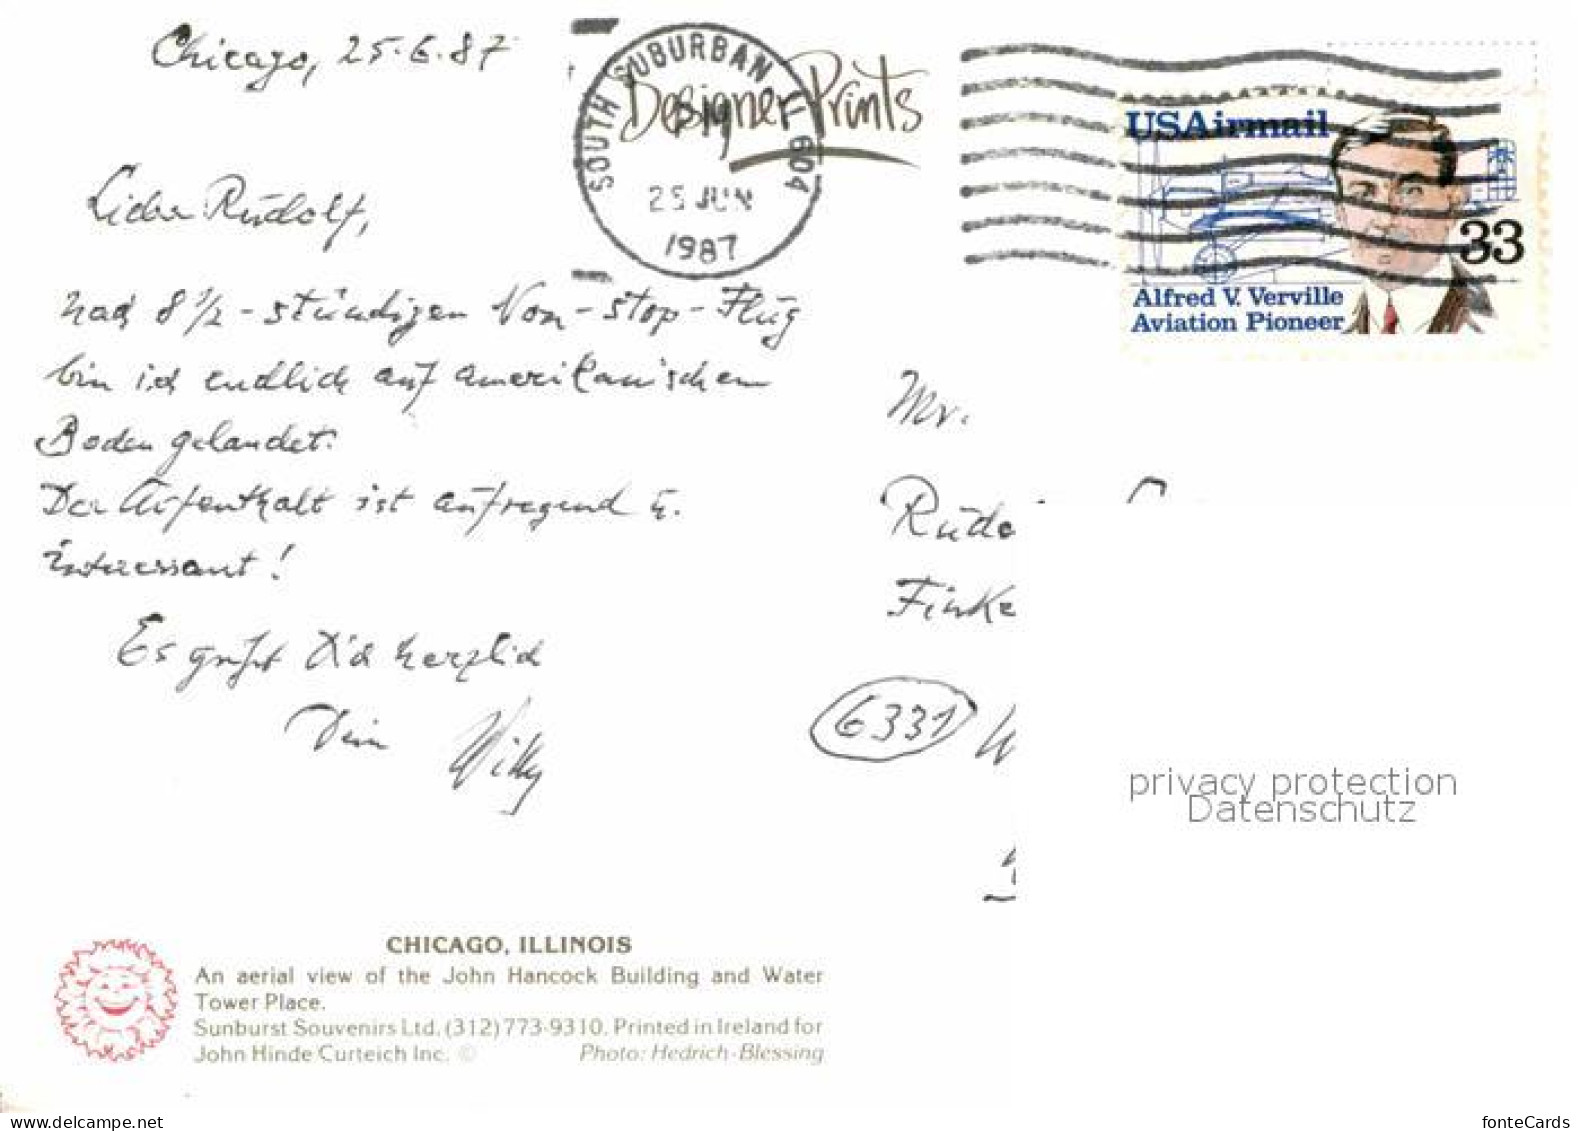 Chicago, 25.6.87
Designer Prints
SOUTH SUBURBAN IL 604
PM
25 JUN
1987
USAirmail
33
Alfred V. Verville
Aviation Pioneer
Lieber Rudolf,
nach 8 1/2-stündigem Non-stop-Flug
bin ich endlich auf amerikanischem
Boden gelandet.
Der Aufenthalt ist aufregend u.
interessant!
Es grüßt Dich herzlich
Dein Willy
Mr.
Rudo
Finke
6331 W
privacy protection
Datenschutz
CHICAGO, ILLINOIS
An aerial view of the John Hancock Building and Water
Tower Place.
Sunburst Souvenirs Ltd. (312) 773-9310. Printed in Ireland for
John Hinde Curteich Inc. © Photo: Hedrich-Blessing
www.delcampe.net
fonteCards